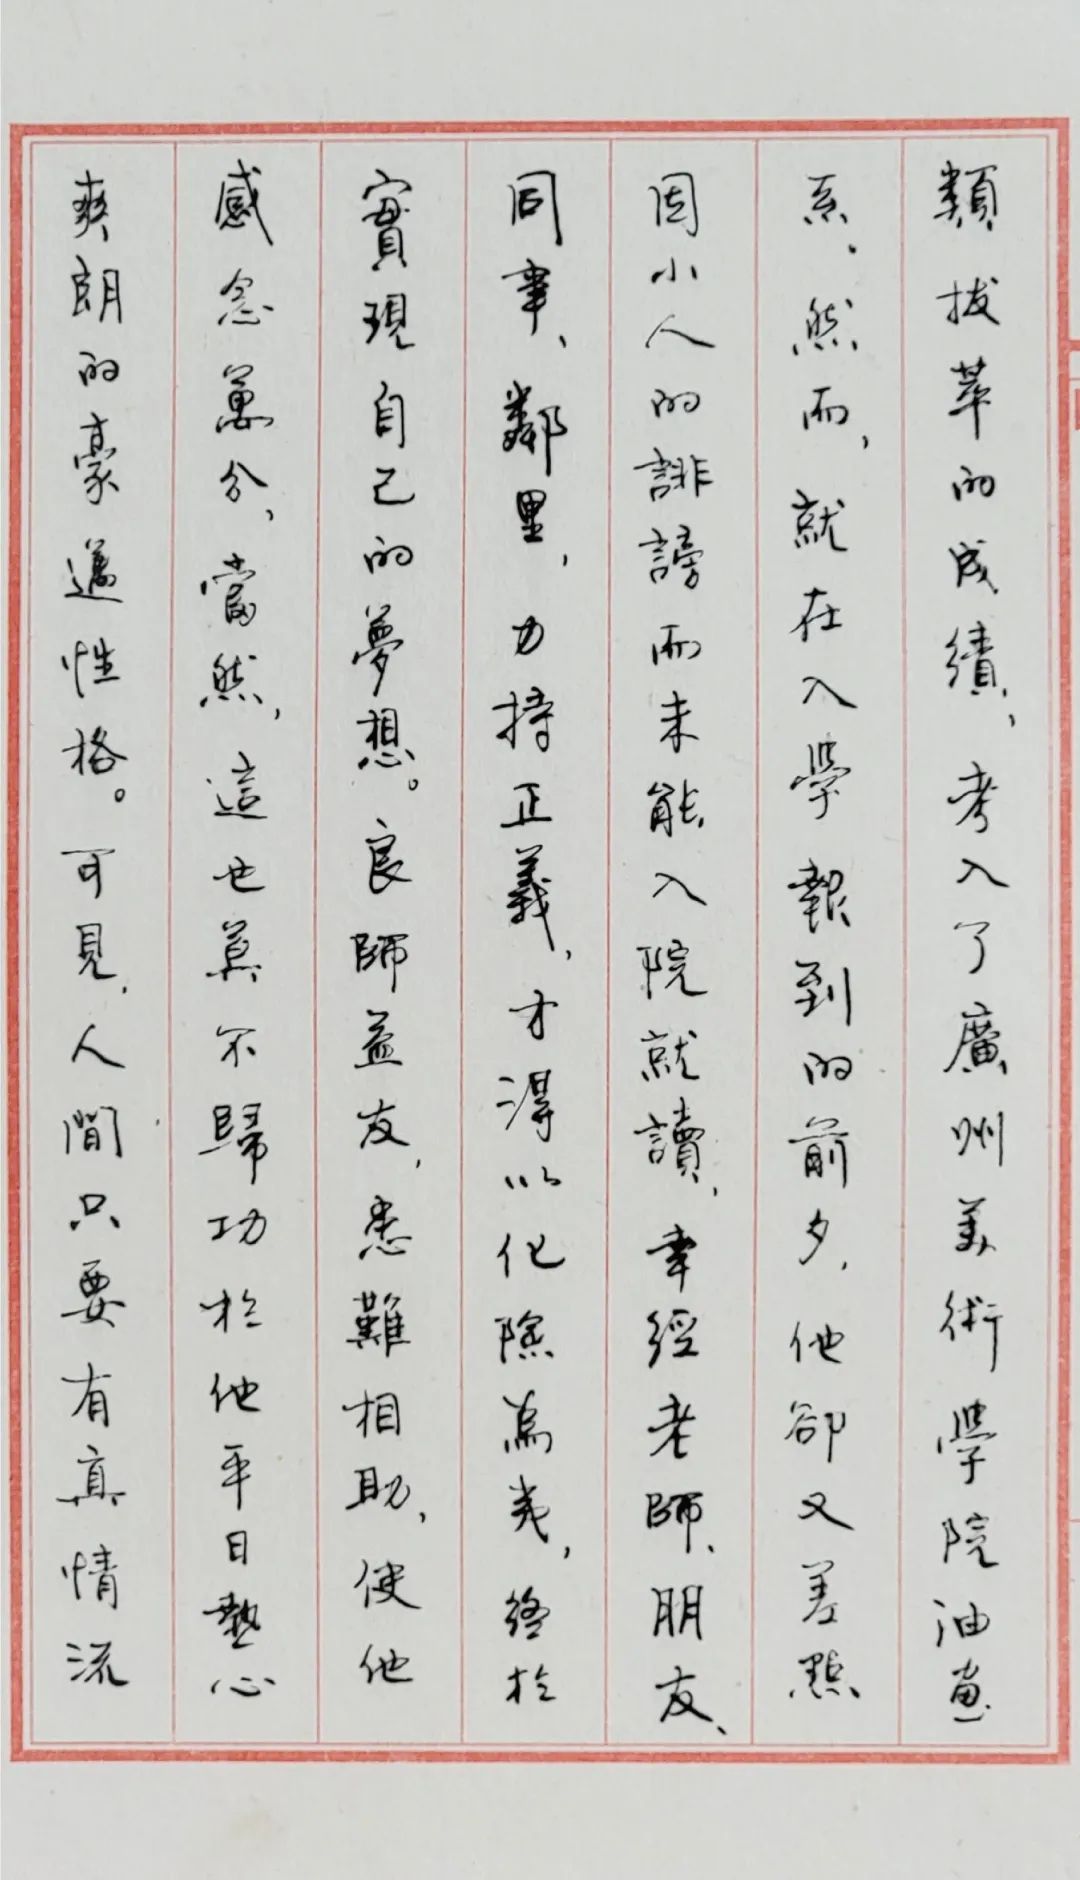 類拔萃的成績，考入了廣州美術學院油畫
系。然而，就在入學報到的前夕，他卻又差點
因小人的誹謗而未能入院就讀，幸經老師、朋友、
同事、鄰里，力持正義，才得以化險為夷，終於
實現自己的夢想。良師益友，患難相助，使他
感念萬分，當然，這也莫不歸功於他平日熱心
爽朗的豪邁性格。可見，人間只要有真情流